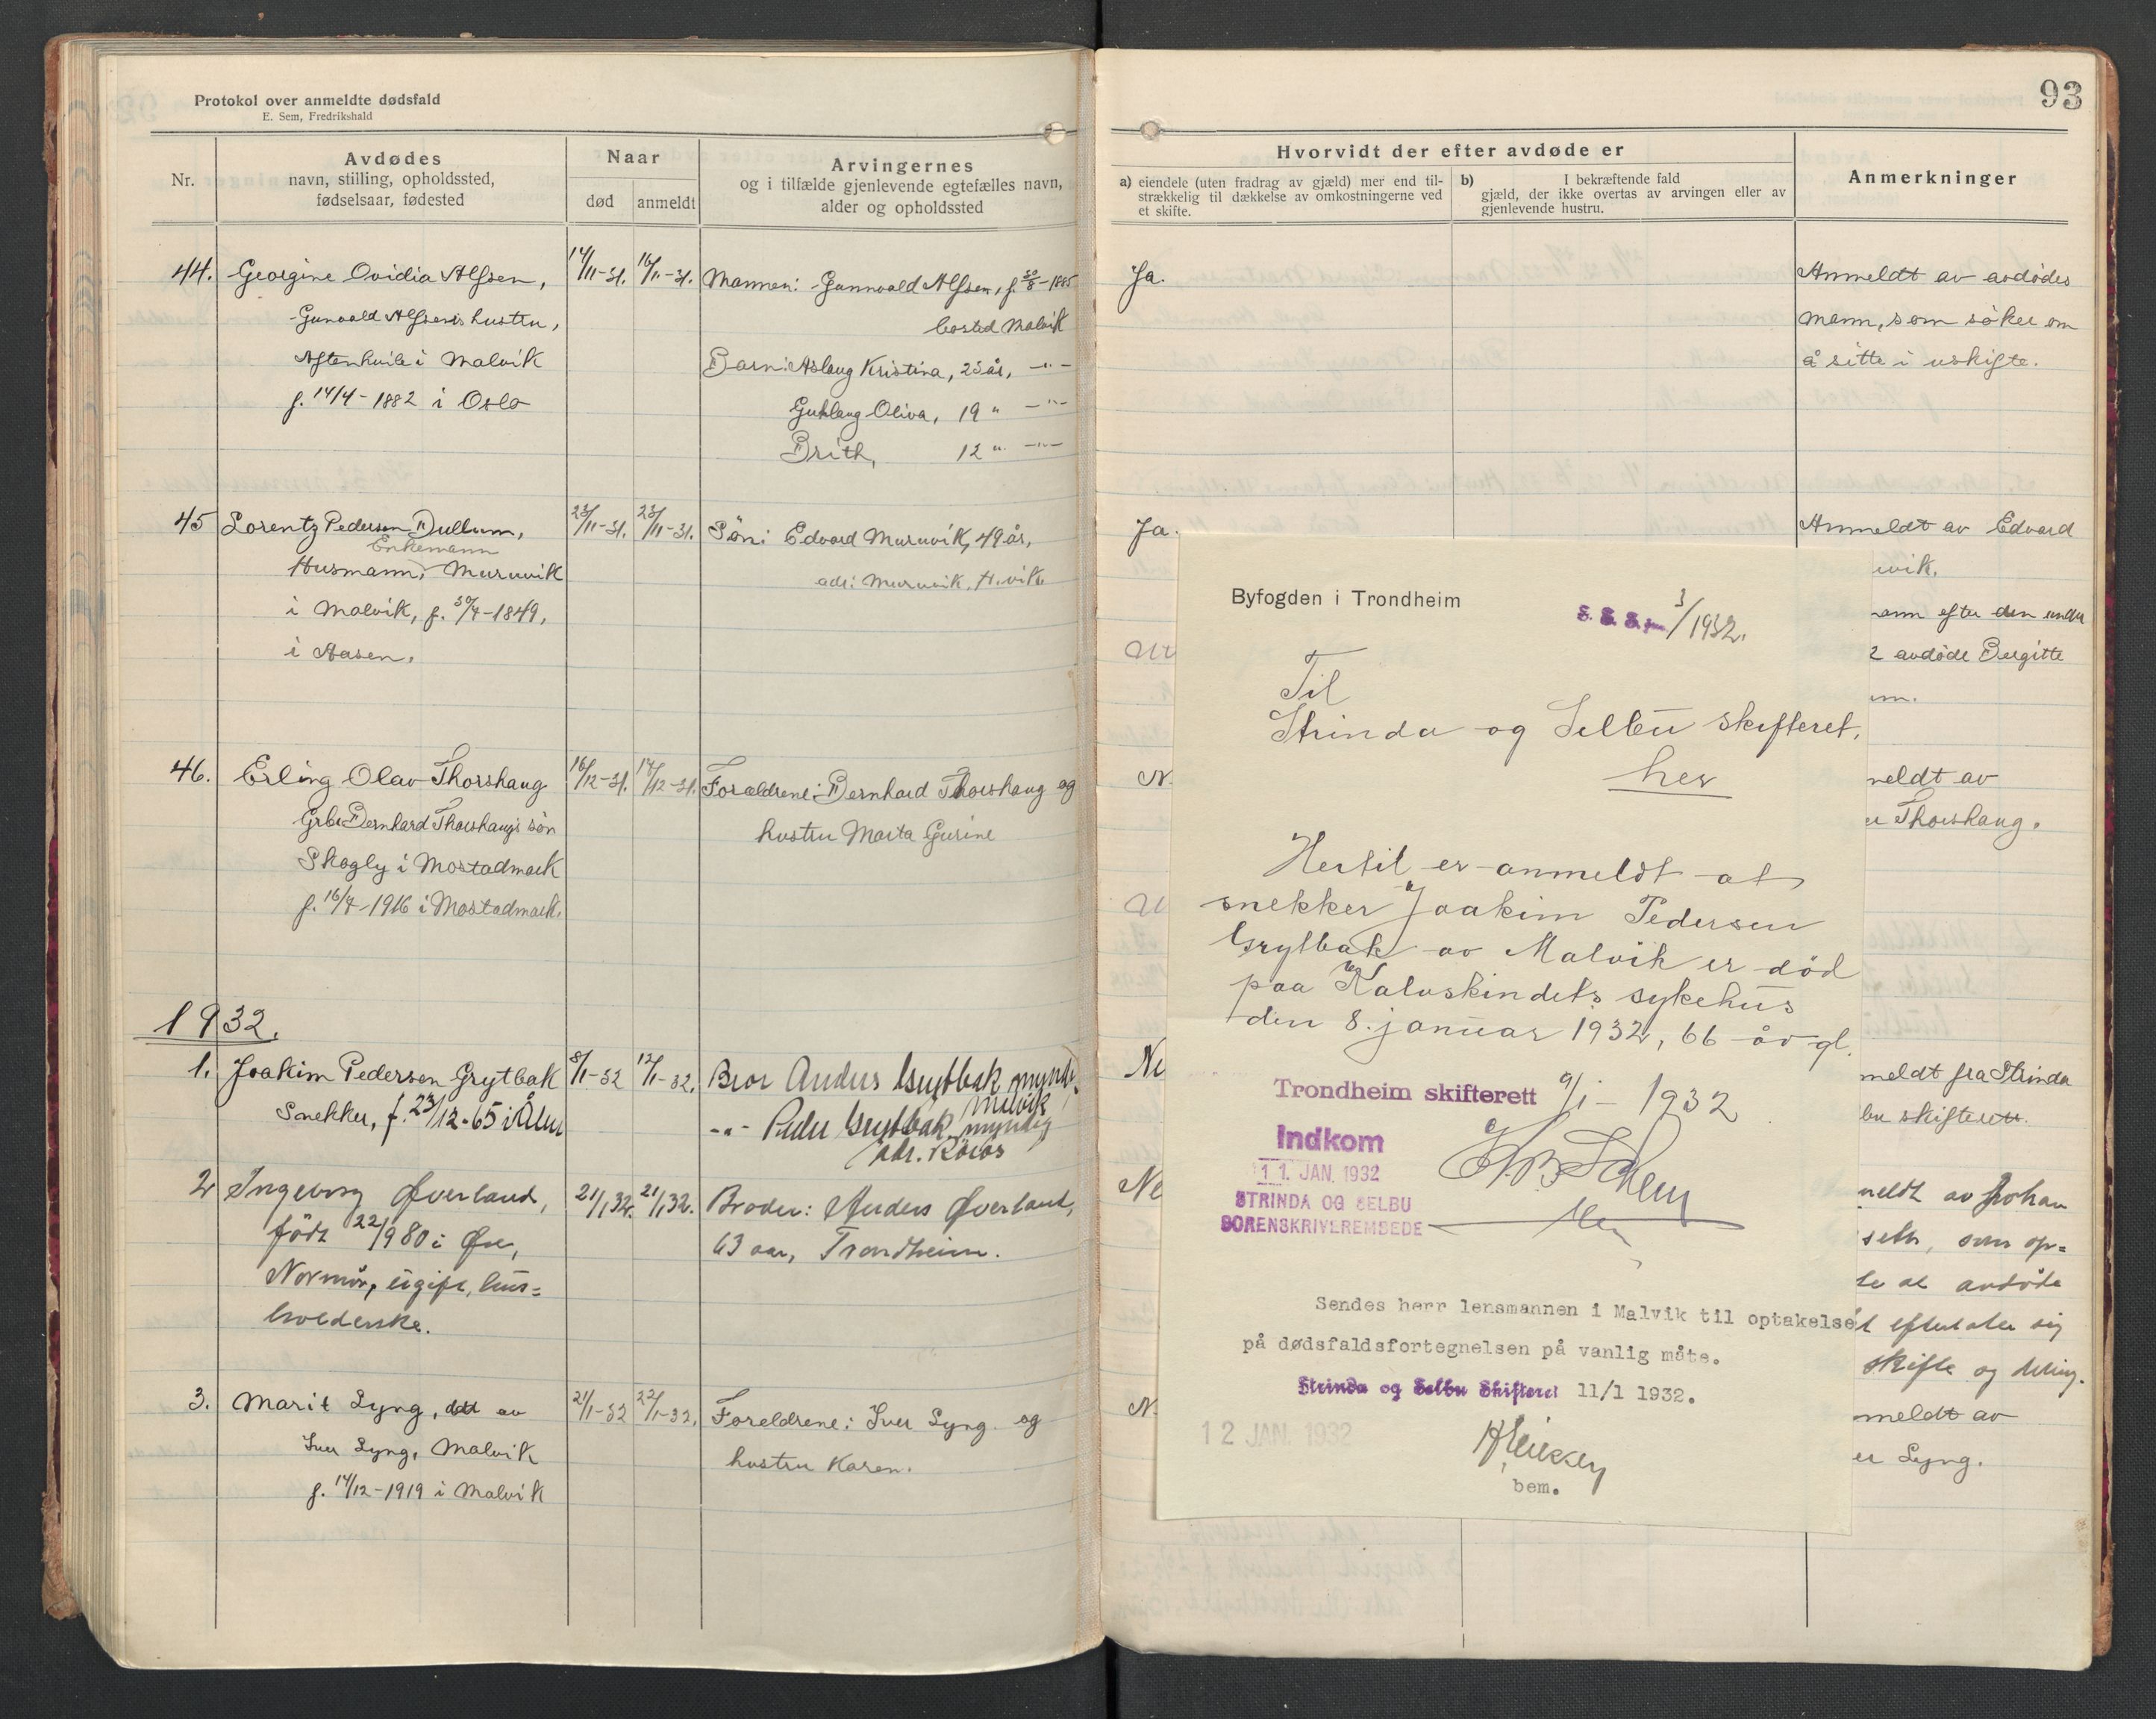 Protokol over anmeldte dødsfald
E. Sem, Fredrikshald
Nr.
Avdødes
navn, stilling, opholdssted,
fødselsaar, fødested
Naar
død
anmeldt
Arvingernes
og i tilfælde gjenlevende egtefælles navn,
alder og opholdssted
44. Georgine Ovidia Alfsen, 14/11-31. 16/11-31. Mannen: Gunnvald Alfsen, f. 30/8-1885
Gunvald Alfsens hustru, bosted Malvik
Aftenhvile i Malvik Barn: Aslaug Kristina, 23 år, -"-
f. 14/4-1882 i Oslo Gudlaug Oliva, 19 " -"-
Brith, 12 " -"-
45 Lorentz Pedersen Dullum, 23/11-31. 23/11-31. Søn: Edvard Muruvik, 49 år,
Enkemann
Husmann, Muruvik adr: Muruvik, H.vik
i Malvik, f. 30/4-1849,
i Aasen.
46. Erling Olav Thorshaug 16/12-31. 17/12-31. Forældrene: Bernhard Thorshaug og
Grbr Bernhard Thorshaug's søn hustru Marta Gurine
Skogly i Mostadmark
f. 16/4-1916 i Mostadmark.
1932.
1. Joakim Pedersen Grytbak 8/1-32 12/1-32. Bror Anders Grytbak myndig
Malvik
Snekker, f. 23/12-65 i Ålen -"- Peder Grytbak, myndig
Adr. Röros
2 Ingeborg Øverland, 21/1 32. 21/1 32. Broder: Anders Øverland,
født 22/9 80 i Øre, 63 aar, Trondheim.
Normør, ugift, hus=
holderske.
3. Marit Lyng, dtt av 21/1-32 22/1-32. Foreldrene: Iver Lyng og
Iver Lyng, Malvik hustru Karen.
f. 14/12-1919 i Malvik
93
Hvorvidt der efter avdøde er
a) eiendele (uten fradrag av gjæld) mer end til-
strækkelig til dækkelse av omkostningerne ved
et skifte.
b) I bekræftende fald
gjæld, der ikke overtas av arvingen eller av
gjenlevende hustru.
Anmerkninger
Ja. Anmeldt av avdødes
mann, som søker om
å sitte i uskifte.
Ja. Anmeldt av Edvard
uvik.
mann efter den under
2 avdøde Bergitte
um.
N
meldt av
er Thorshaug.
Ne
meldt fra Strinda
bu skifterett.
Ne
meldt av Johan
seth, som op=
te at avdøde
t efterlater sig
skifte og deling.
N.
meldt av
er Lyng.
Byfogden i Trondheim
S. S. S. 3/1932.
Til
Strinda og Selbu skifteret,
her
Hertil er anmeldt at
snekker Joakim Pedersen
Grytbak av Malvik er død
paa Kalvskindets sykehus
den 8. januar 1932, 66 år gl.
Trondheim skifterett 9/1-1932
Indkom
11. JAN. 1932
STRINDA OG SELBU
SORENSKRIVEREMBEDE
Sendes herr lensmannen i Malvik til optakelse
på dødsfaldsfortegnelsen på vanlig måte.
Strinda og Selbu Skifteret 11/1 1932.
12 JAN. 1932
bem.